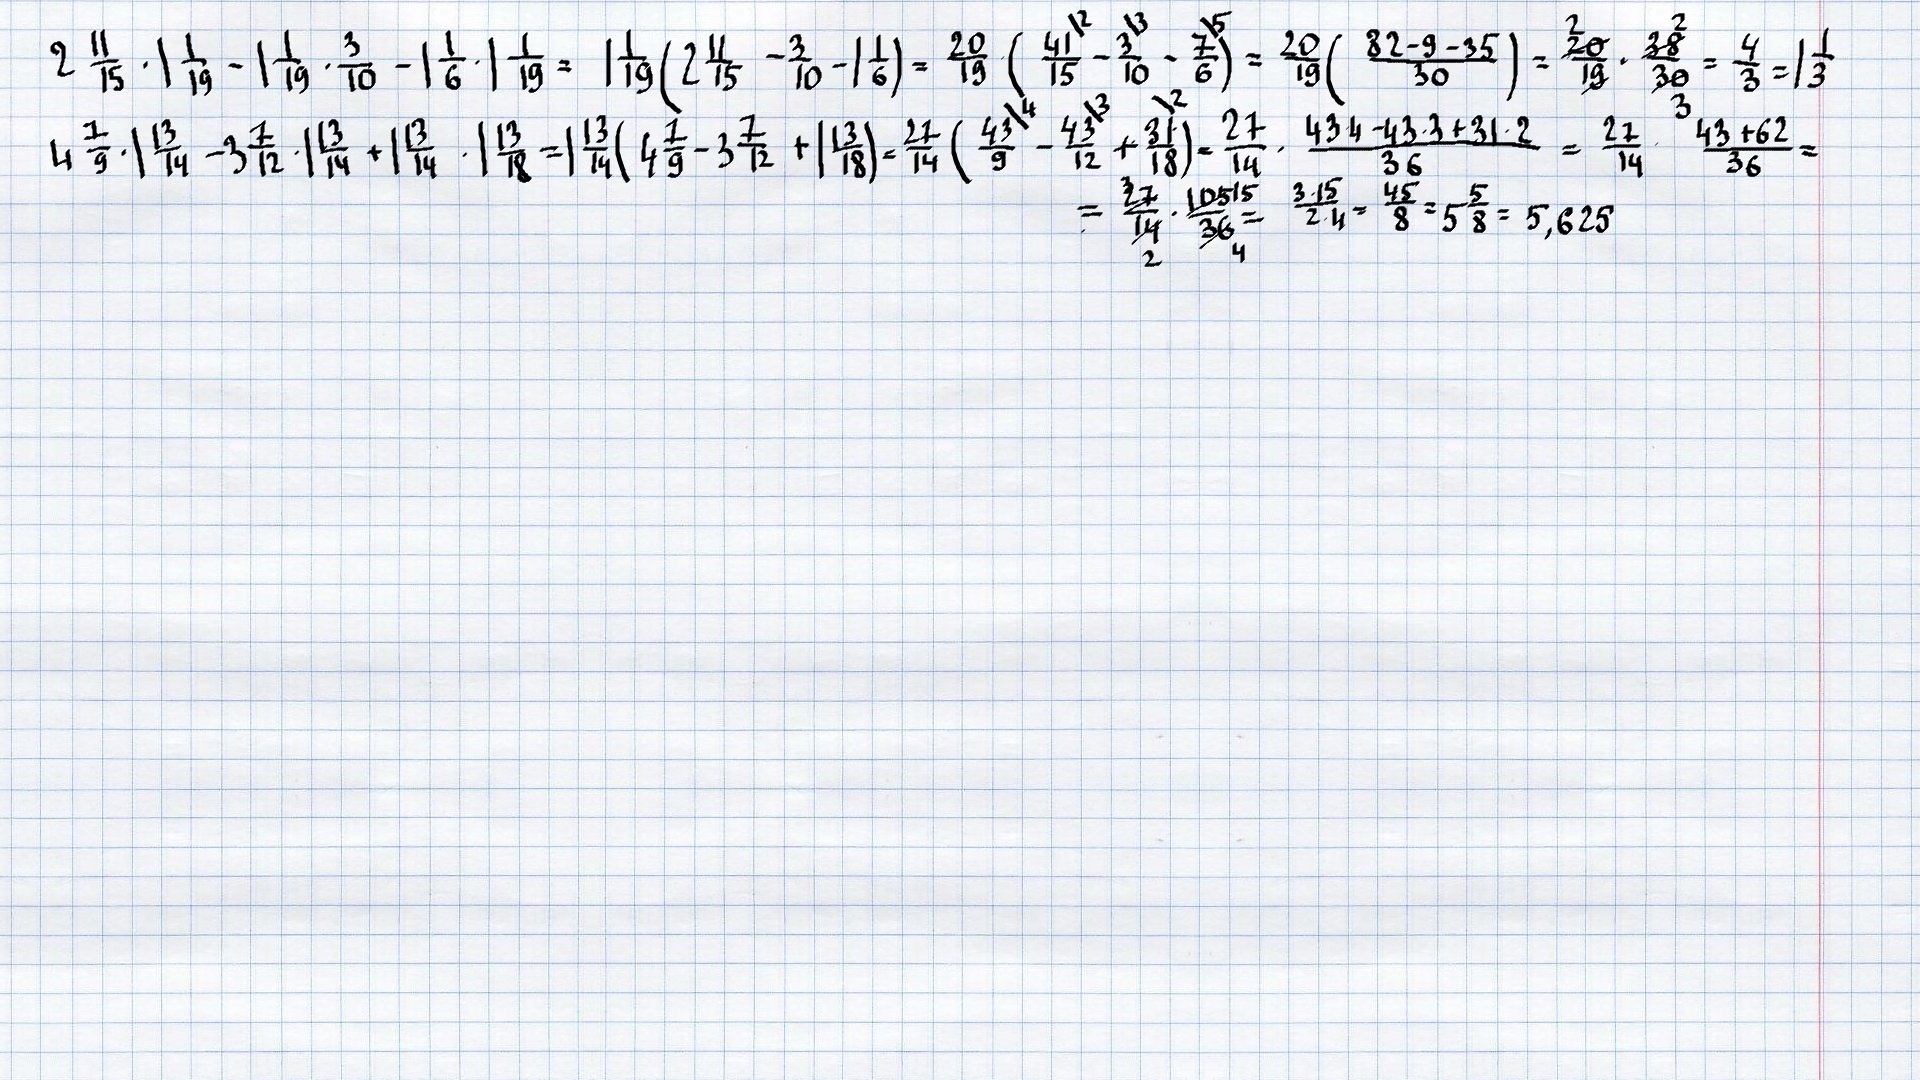 2 11/15 · 1 1/19 - 1 1/19 · 3/10 - 1 1/6 · 1 1/19 = 1 1/19 (2 11/15 - 3/10 - 1 1/6) = 20/19 · (41/15 \2 - 3/10 \3 - 7/6 \5) = 20/19 (82-9-35 / 30) = 20/19 2 · 38/30 2 3 = 4/3 = 1 1/3
4 7/9 · 1 13/14 - 3 7/12 · 1 13/14 + 1 13/14 · 1 13/18 = 1 13/14 (4 7/9 - 3 7/12 + 1 13/18) = 27/14 (43/9 \4 - 43/12 \3 + 31/18 \2) = 27/14 · 43·4-43·3+31·2 / 36 = 27/14 · 43+62 / 36 =
= 27/14 3 2 · 105/36 15 4 = 3·15 / 2·4 = 45/8 = 5 5/8 = 5,625